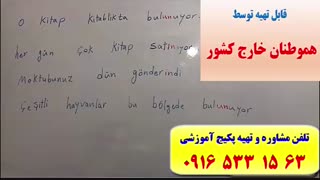 O kitap kitablıkta bulunuyor.
her gün çok kitap satınıyor
Moktubunuz dün gönderindi
Çeşitli hayvanlar bu bölgede bulunuyor
قابل تهیه توسط
هموطنان خارج کشور
تلفن مشاوره و تهیه پکیج آموزشی
۰۹۱۶ ۵۳۳ ۱۵ ۶۳